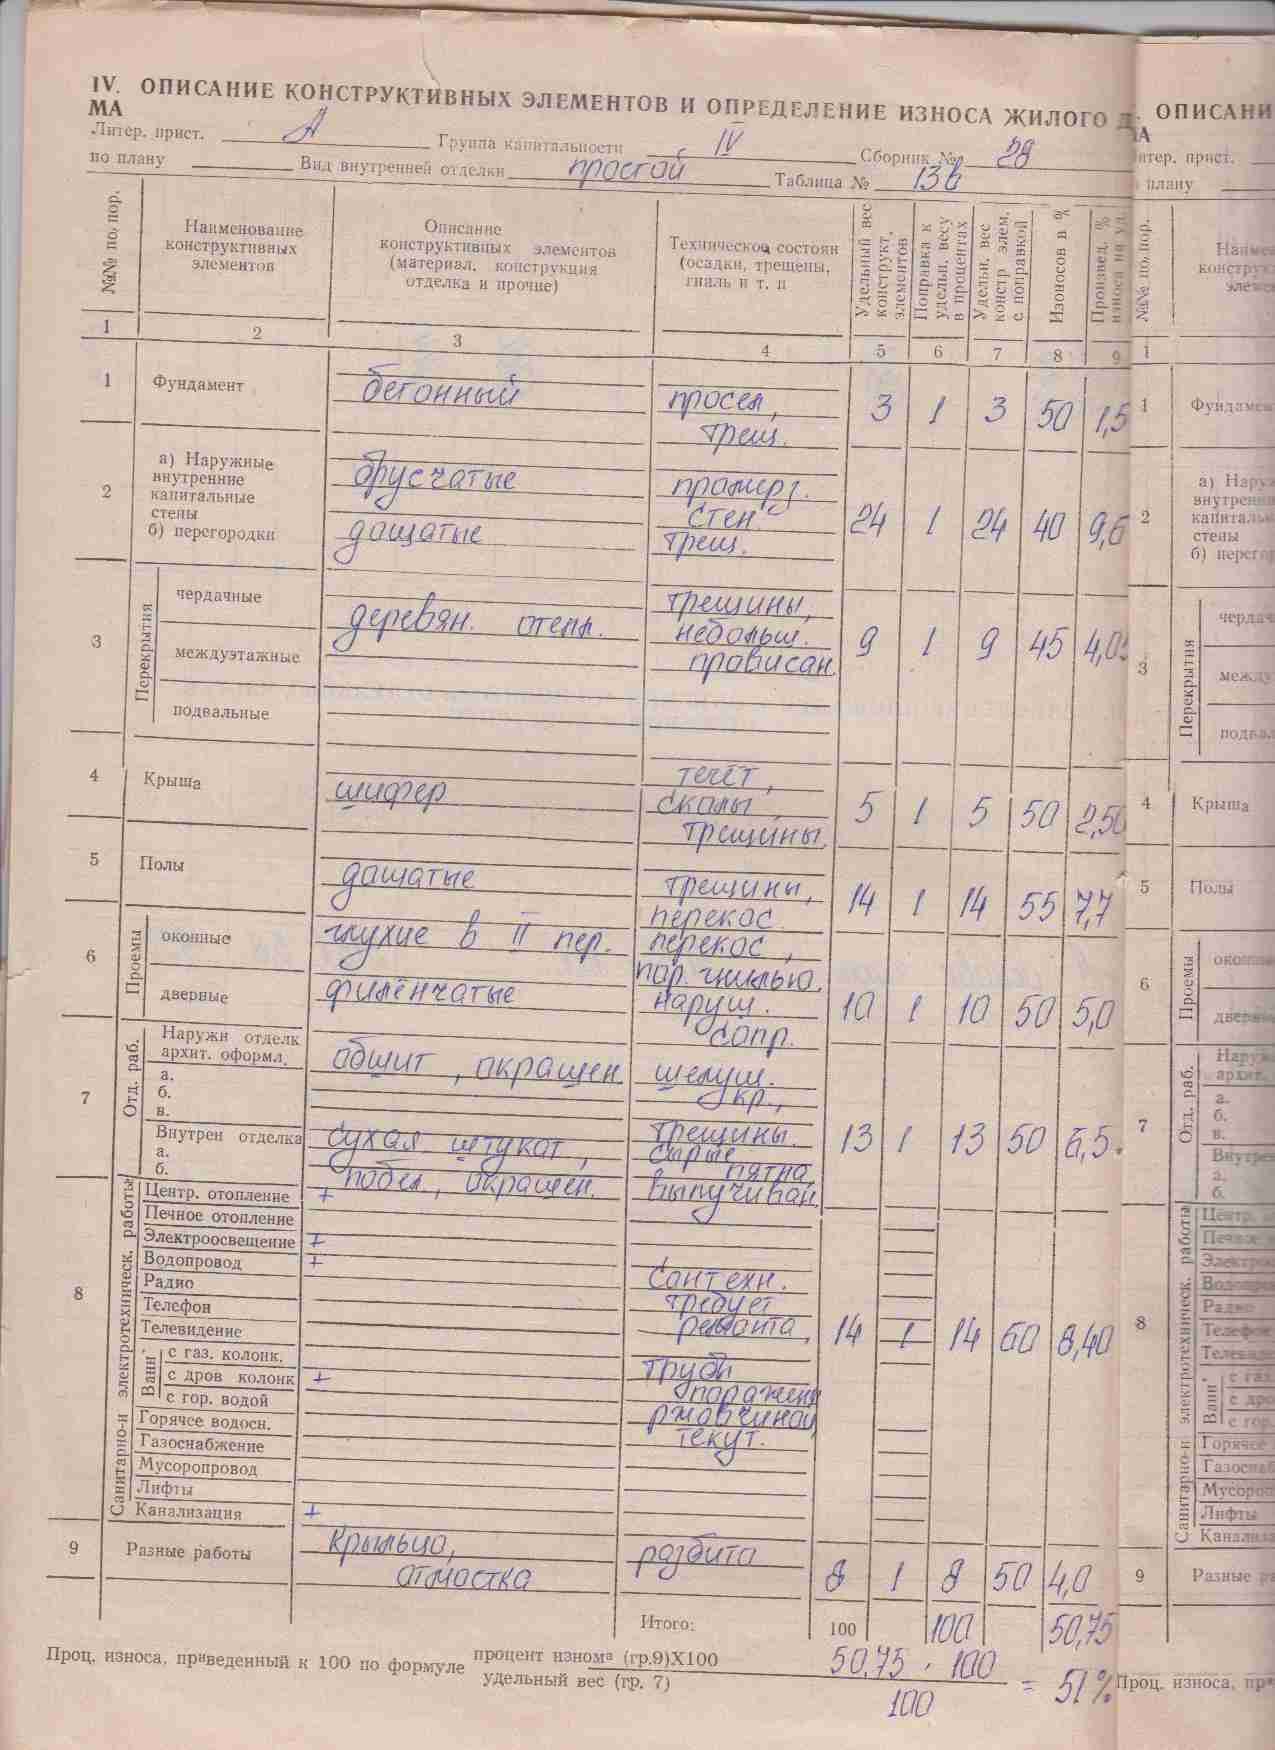 IV. ОПИСАНИЕ КОНСТРУКТИВНЫХ ЭЛЕМЕНТОВ И ОПРЕДЕЛЕНИЕ ИЗНОСА ЖИЛОГО Д
МА
Литер. прист. А Группа капитальности IV Сборник № 28
по плану Вид внутренней отделки простой Таблица № 13в
№№ по. пор.
Наименование конструктивных элементов
Описание конструктивных элементов (материал, конструкция отделка и прочие)
Техническое состоян (осадки, трещены, гниль и т. п
Удельный вес конструкт, элементов
Поправка к удельн. весу в процентах
Удельн. вес констр элем. с поправкой
Изоносов в %
Произвед. % износа на уд.
1 2 3 4 5 6 7 8 9
1 Фундамент бетонный просел, трещ. 3 1 3 50 1,5
2 а) Наружные внутренние капитальные стены брусчатые промерз. стен
б) перегородки дощатые трещ. 24 1 24 40 9,6
3 Перекрытия
чердачные трещины,
междуэтажные деревян. отепл. небольш. провисан. 9 1 9 45 4,05
подвальные
4 Крыша шифер течёт, сколы, трещины. 5 1 5 50 2,50
5 Полы дощатые трещины, перекос 14 1 14 55 7,7
6 Проемы
оконные глухие в II пер. перекос, пор. гнилью.
дверные филёнчатые наруш. сопр. 10 1 10 50 5,0
7 Отд. раб.
Наружн отделк архит. оформл. обшит, окрашен шелуш. кр.,
а.
б.
в.
Внутрен отделка сухая штукот, трещины. сырые пятна,
а.
б. побел., окрашен. выпучиван. 13 1 13 50 6,5.
8 Санитарно-и электротехническ. работы
Центр. отопление +
Печное отопление
Электроосвещение +
Водопровод +
Радио Сантехн.
Телефон требует
Телевидение ремонта, 14 1 14 60 8,40
Ванн
с газ. колонк. трубы
с дров колонк + поражены
с гор. водой ржавчиной,
Горячее водосн. текут.
Газоснабжение
Мусоропровод
Лифты
Канализация +
9 Разные работы крыльцо, отмостка разбита 8 1 8 50 4,0
Итого: 100 100 50,75
Проц. износа, приведенный к 100 по формуле процент износа (гр.9)Х100 50,75 · 100
удельный вес (гр. 7) 100 = 51%
ОПИСАНИ
А
литер. прист.
плану
№№ по.пор.
1
1 Фундамен
2 а) Наруж
внутренни
капитальн
стены
б) перегор
3 Перекрытия
чердач
межд
подвал
4 Крыша
5 Полы
6 Проемы
оконн
дверны
7 Отд. раб.
Наруж
архит.
а.
б.
в.
Внутрен
а.
б.
8 Санитарно-и электротехническ. работы
Центр. о
Печное о
Электро
Водопро
Радио
Телефон
Телевиде
Ванн
с газ.
с дро
с гор.
Горячее
Газоснаб
Мусороп
Лифты
Канализа
9 Разные ра
Проц. износа, при